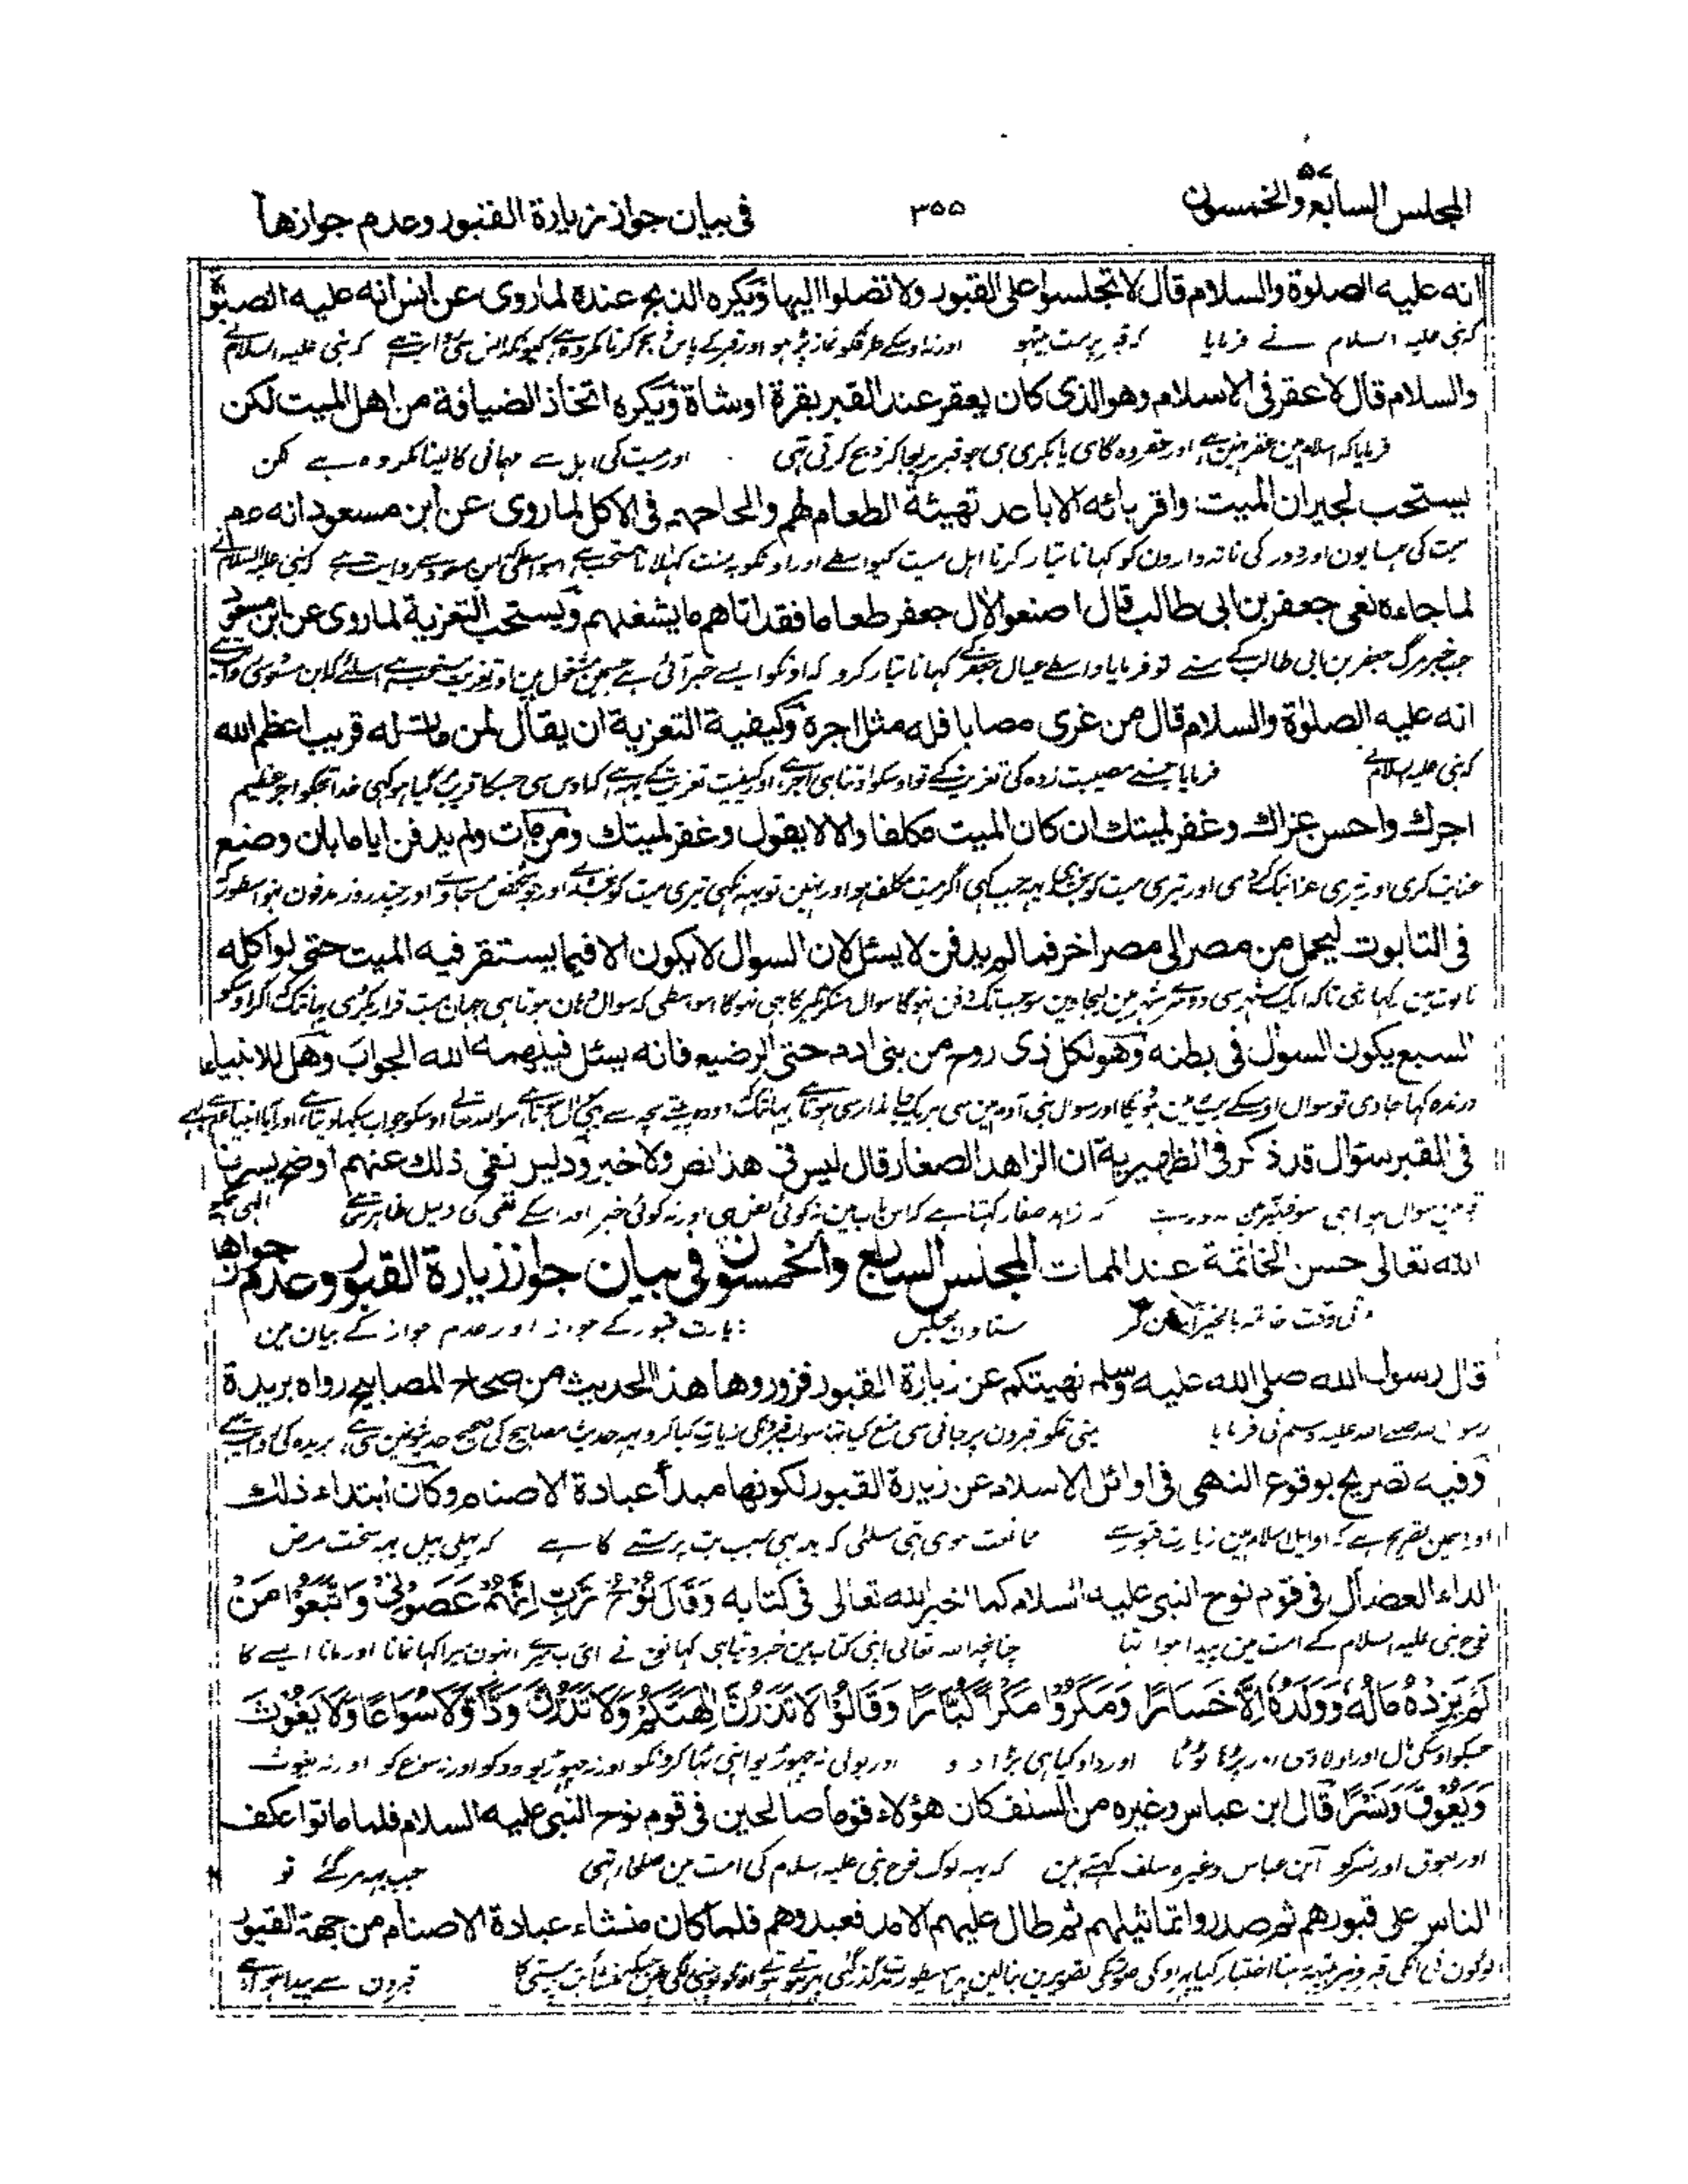 المجلس السابع والخمسون
۵۷
۳۵۵
فى بيان جواز زيارة القبور وعدم جوازها
انه عليه الصلوة والسلام قال لا تجلسوا على القبور ولا تصلوا اليها ويكره الذبح عنده لما روى عن انس انه عليه الصلوة
کہ نبی علیہ السلام نے فرمایا کہ قبر پر مت بیٹھو اور نہ اوسکے طرفکو نماز پڑہو اور قبر کے پاس ذبح کرنا مکروہ ہے کیونکہ انس سی روایت ہے کہ نبی علیہ السلام نے
والسلام قال لا عقر فى الاسلام وهو الذى كان يعقر عند القبر بقرة او شاة ويكره اتخاذ الضيافة من اهل الميت لكن
فرمایا کہ اسلام مین عقر نہین ہے اور عقر وہ گای یا بکری ہی جو قبر پر لیجاکر ذبح کرتی تہی اور میت کی اہل سے مہمانی کا لینا مکروہ ہے لکن
يستحب لجيران الميت واقربائه الاباعد تهيئة الطعام لهم والحاحهم فى الاكل لما روى عن ابن مسعود انه عم
میت کی ہمسایون اور دور کی ناتہ دارون کو کہانا تیار کرنا اہل میت کیواسطے اور اونکو بمنت کہلانا مستحب ہے اسواسطی کہ ابن مسعود سے روایت ہے کہ نبی علیہ السلام نے
لما جاءه نعى جعفر بن ابى طالب قال اصنعوا لال جعفر طعاما فقد اتاهم ما يشغلهم ويستحب التعزية لما روى عن ابن مسعود
جب خبر مرگ جعفر بن ابی طالب کے سنے تو فرمایا واسطے عیال جعفر کے کہانا تیار کرو کہ اونکو ایسے خبر آئی ہے جسمین مشغول ہین اور تعزیت مستحب ہے اسلئے کہ ابن مسعود سی روایت ہے
انه عليه الصلوة والسلام قال من عزى مصابا فله مثل اجره وكيفية التعزية ان يقال لمن مات له قريب اعظم الله
کہ نبی علیہ السلام نے فرمایا جسنے مصیبت زدہ کی تعزیت کے تو اوسکو اوتنا ہی اجر ہے اور کیفیت تعزیت کے یہہ ہے کہ اوس سی جسکا قریب مر گیا ہو کہی خدا تجکو اجر عظیم
اجرك واحسن عزاك وغفر لميتك ان كان الميت مكلفا والا لا يقول وغفر لميتك ومن مات ولم يدفن اياما بان وضع
عنایت کری اور تیری عزا نیک کرے اور تیری میت کو بخشی یہہ جب کہی اگر میت مکلف ہو اور نہین تو یہہ نکہی تیری میت کو بخشے اور جو شخص مرجاوے اور چند روز مدفون نہو اسطور کہ
فى التابوت ليحمل من مصر الى مصر اخر فما لم يدفن لا يسئل لان السوال لا يكون الا فيما يستقر فيه الميت حتى لو اكله
تابوت مین رکہا ہی تاکہ ایک شہر سی دوسرے شہر مین لیجاوین سو جب تک دفن نہوگا سوال منکر نکیر کا بہی نہوگا اسواسطی کہ سوال وہان ہوتا ہی جہان میت قرار پکڑی یہانتک اگر اوسکو
السبع يكون السوال فى بطنه وهو لكل ذى روح من بنى ادم حتى الرضيع فانه يسئل فيلهمه الله الجواب وهل للانبياء
درندہ کہا جاوی تو سوال اوسکے پیٹ مین ہوگا اور سوال بنی آدم مین سی ہر یک جاندار سی ہوتا ہے یہانتک کہ دودہ پیتے بچہ سے
فى القبر سؤال قد ذكر فى الظهيرية ان الزاهد الصفار قال ليس فى هذا نص ولا خبر ودليل نفى ذلك عنهم اوضح يسرنا
کہ زاہد صفار کہتا ہے کہ اس باب مین نہ کوئی نص ہی اور نہ کوئی خبر اور اسکے نفی کی دلیل ظاہر تر ہے الہی ہمکو
الله تعالى حسن الخاتمة عند الممات المجلس السابع والخمسون فى بيان جواز زيارة القبور وعدم جوازها
ستاون مجلس زیارت قبور کے جواز اور عدم جواز کے بیان مین
قال رسول الله صلى الله عليه وسلم نهيتكم عن زيارة القبور فزوروها هذا الحديث من صحاح المصابيح رواه بريدة
رسول اللہ صلے اللہ علیہ وسلم نی فرمایا مینی تمکو قبرون پر جانی سی منع کیا تہا سو اب قبرونکی زیارت کیا کرو یہہ حدیث مصابیح کی صحیح حدیثونمین سے ہے بریدہ کی روایت سے
وفيه تصريح بوقوع النهى فى اوائل الاسلام عن زيارة القبور لكونها مبدأ عبادة الاصنام وكان ابتداء ذلك
اور اسمین تصریح ہے کہ اوایل اسلام مین زیارت قبور سے ممانعت ہوی تہی اسلئی کہ یہہ ہی سبب بت پرستے کا ہے کہ پہلی پہل یہہ سخت مرض
الداء العضال فى قوم نوح النبى عليه السلام كما اخبر الله تعالى فى كتابه وَقَالَ نُوْحٌ رَّبِّ اِنَّهُمْ عَصَوْنِىْ وَاتَّبَعُوْا مَنْ
نوح نبی علیہ السلام کے امت مین پیدا ہوا تہا چنانچہ اللہ تعالی اپنی کتاب مین خبر دیتا ہی کہا نوح نے ای رب میرے انہون نے میرا کہا نمانا اور مانا ایسے کا
لَّمْ يَزِدْهُ مَالُهٗ وَوَلَدُهٗ اِلَّا خَسَارًا وَمَكَرُوْا مَكْرًا كُبَّارًا وَقَالُوْا لَا تَذَرُنَّ اٰلِهَتَكُمْ وَلَا تَذَرُنَّ وَدًّا وَّلَا سُوَاعًا وَّلَا يَغُوْثَ
جسکو اوسکی مال اور اولاد سی اور بڑہا ٹوٹا اور داو کیا ہی بڑا داو اور بولی نہ چہوڑیو اپنی ٹہاکرونکو اور نہ چہوڑیو ود کو اور نہ سوع کو اور نہ یغوث
وَيَعُوْقَ وَنَسْرًا قال ابن عباس وغيره من السلف كان هؤلاء قوما صالحين فى قوم نوح النبى عليه السلام فلما ماتوا عكف
اور یعوق اور نسر کو ابن عباس وغیرہ سلف کہتے ہین کہ یہہ لوک نوح نبی علیہ سلام کی امت مین صلحا رتہی جب یہہ مر گئے تو
الناس على قبورهم ثم صوروا تماثيلهم ثم طال عليهم الامد فعبدوهم فلما كان منشاء عبادة الاصنام من جهة القبور
قبرون سے پیدا ہوا ہے